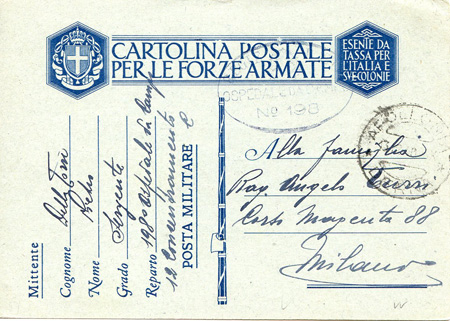 CARTOLINA POSTALE
PER LE FORZE ARMATE
ESENTE DA
TASSA PER
L'ITALIA E
SVE COLONIE
OSPEDALE DA
No 198
Alla famiglia
Rag. Angelo
Corso Magenta 88
Milano
Mittente
Cognome Della
Nome
Grado Sergente
Reparto 198o Ospedale da Campo
12 Concentramento
POSTA MILITARE